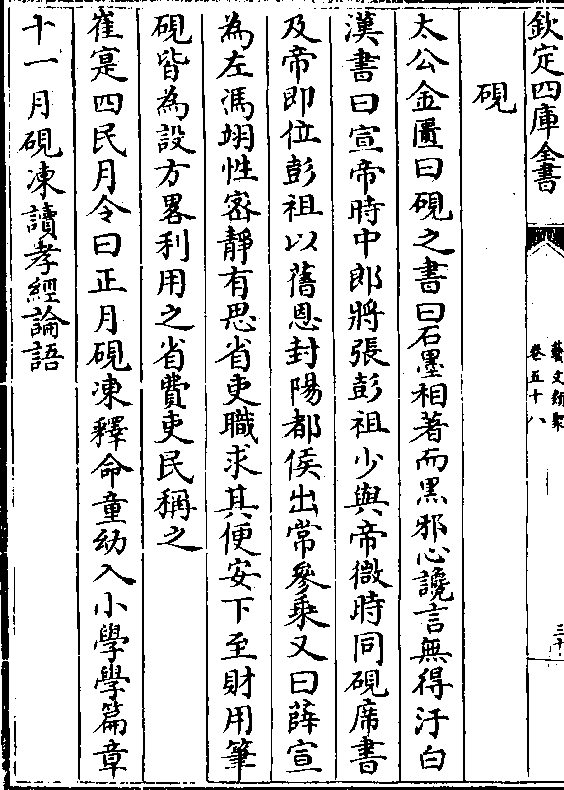 欽定四庫全書
藝文類聚
卷五十八
三十
硯
太公金匱曰硯之書曰石墨相著而黑邪心讒言無得汙白
漢書曰宣帝時中郎將張彭祖少與帝微時同硯席書
及帝即位彭祖以舊恩封陽都侯出常參乗又曰薛宣
為左馮翊性宻靜有思省吏職求其便安下至財用筆
硯皆為設方畧利用之省費吏民稱之
崔寔四民月令曰正月硯凍釋命童幼入小學學篇章
十一月硯凍讀孝經論語